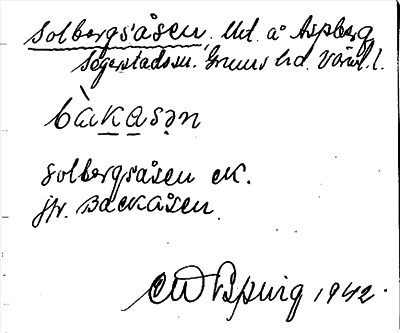 Solbergsåsen, Utl. å Aspberg
Segerstads sn. Grums hd. Värml. l.
bàkasən
Solbergsåsen ek.
jfr. Backåsen
1942.